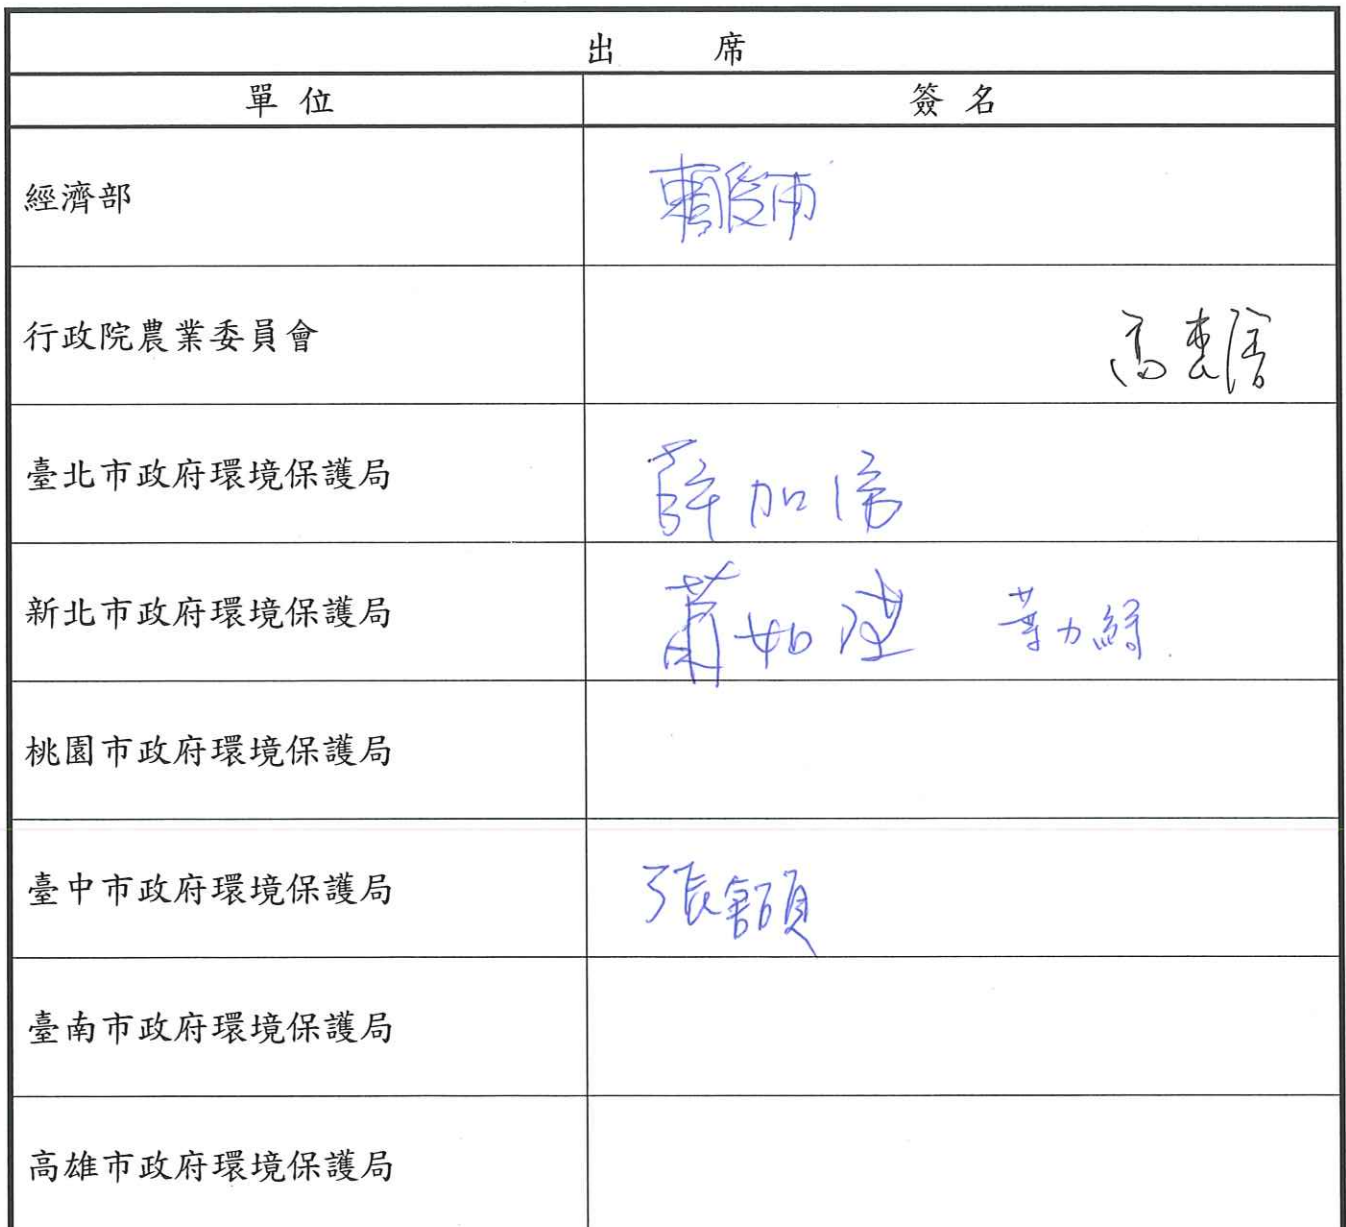 出 席
單位 簽名
經濟部
行政院農業委員會 高
臺北市政府環境保護局 薛加
新北市政府環境保護局 蕭如
桃園市政府環境保護局
臺中市政府環境保護局 張
臺南市政府環境保護局
高雄市政府環境保護局